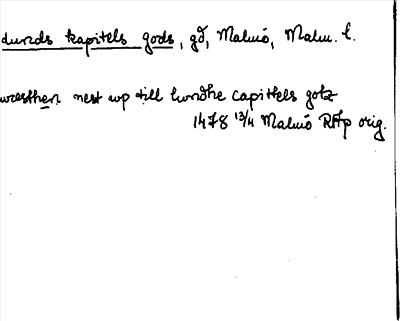 Lunds kapitels gods, gd, Malmö, Malm. l.
wæsthen nest wp till lwndhe capittels gotz
1478 13/4 Malmö RAp orig.